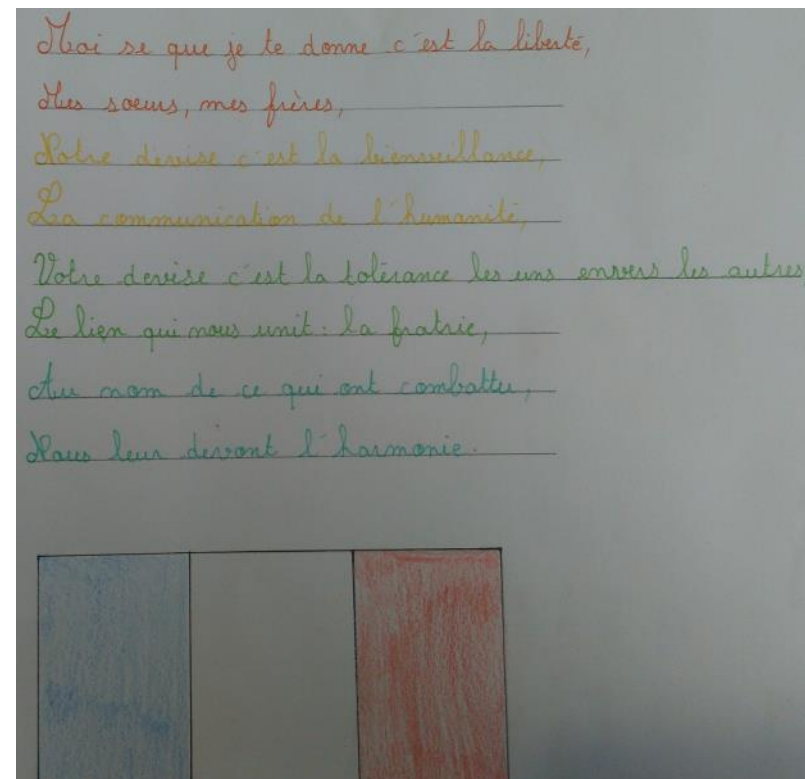 Moi se que je te donne c'est la liberté,
Mes soeurs, mes frères,
Notre devise c'est la bienveillance,
La communication de l'humanité,
Votre devise c'est la tolérance les uns envers les autres
Le lien qui nous unit : la fratrie,
Au nom de ce qui ont combattu,
Nous leur devont l'harmonie.